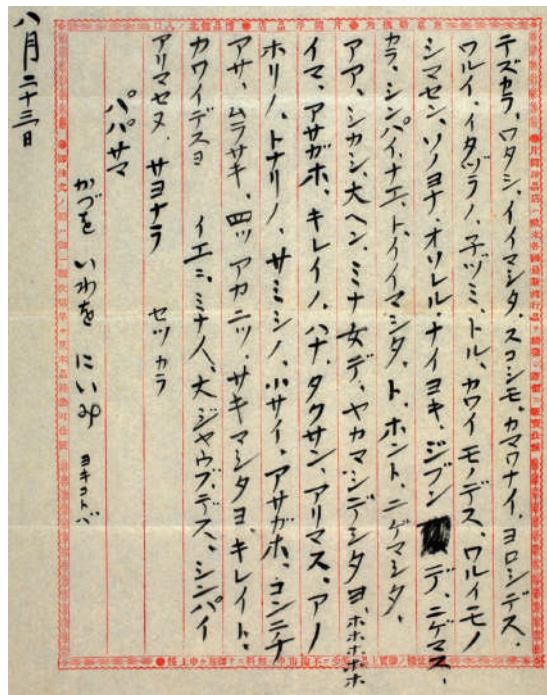 テズカラ、ワタシ、イイマシタ、スコシモ、カマワナイ、ヨロシデス、
ワルイ、イタヅラノ、子ヅミ、トル、カワイモノデス、ワルイモノ
シマセン、ソノヨナ、オソレル、ナイヨキ、ジブン デ、ニゲマス、
カラ、シンパイ、ナエ、ト、イイマシタ、ト、ホント、ニゲマシタ、
アア、シカシ、大ヘン、ミナ女デ、ヤカマシデシタヨ、ホホホホホ
イマ、アサガホ、キレイノ、ハナ、タクサン、アリマス、アノ
ホリノ、トナリノ、サミシノ、小サイ、アサガホ、コンニチ
アサ、ムラサキ、四ツ アカニツ、サキマシタヨ、キレイト、
カワイデスヨ イエニ、ミナ人、大ジヤウブ、デス、シンパイ
アリマセヌ、サヨナラ セツカラ
パパサマ
かづを いわを にいみ ヨキコトバ
八月二十三日